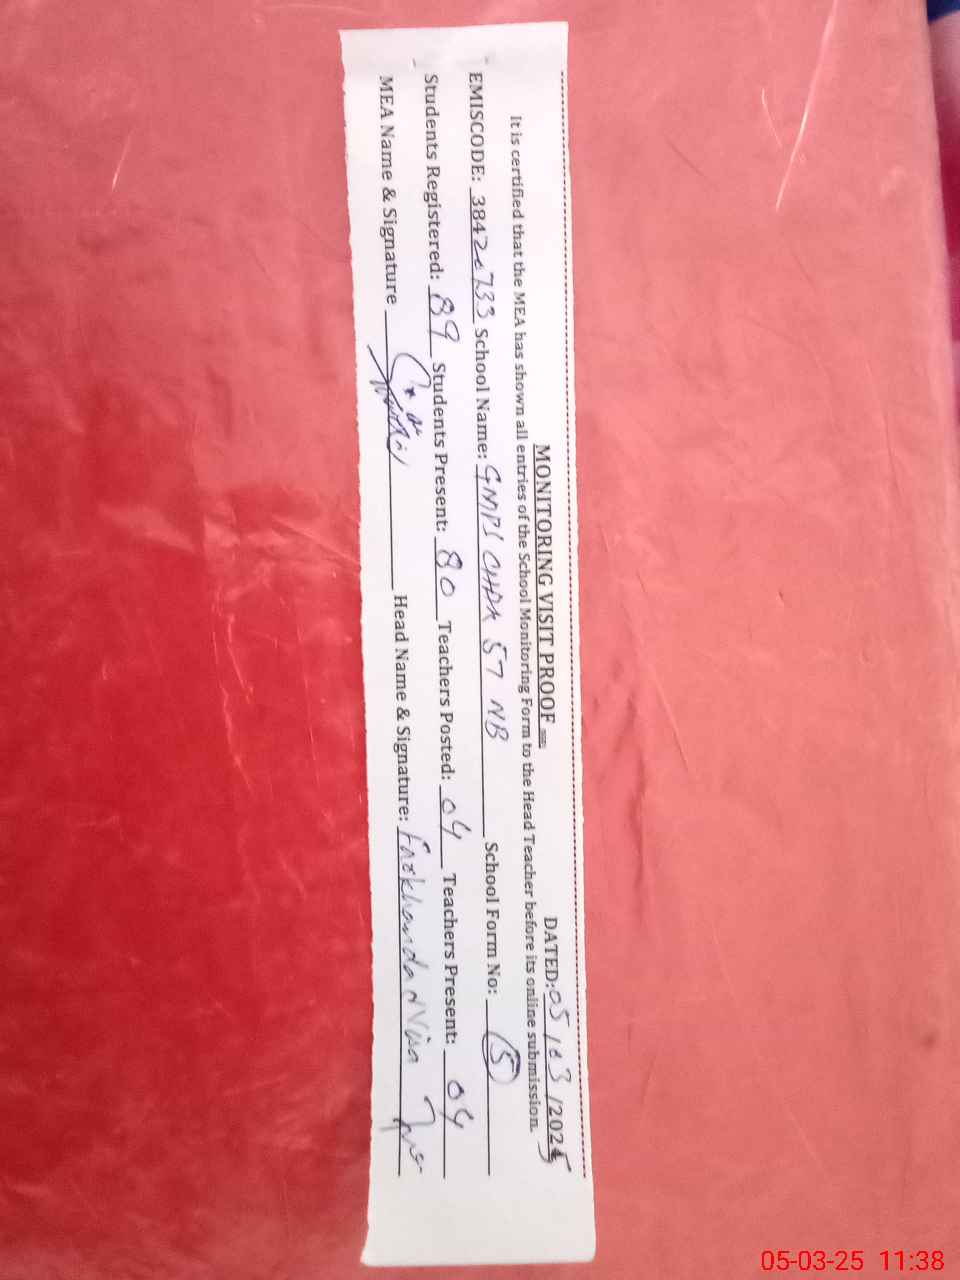 MONITORING VISIT PROOF
DATED: 05/03/2025
It is certified that the MEA has shown all entries of the School Monitoring Form to the Head Teacher before its online submission.
EMISCODE: 38420733 School Name: GMPS CHAK 57 NB School Form No: 5
Students Registered: 89 Students Present: 80 Teachers Posted: 04 Teachers Present: 04
MEA Name & Signature Head Name & Signature:
05-03-25 11:38